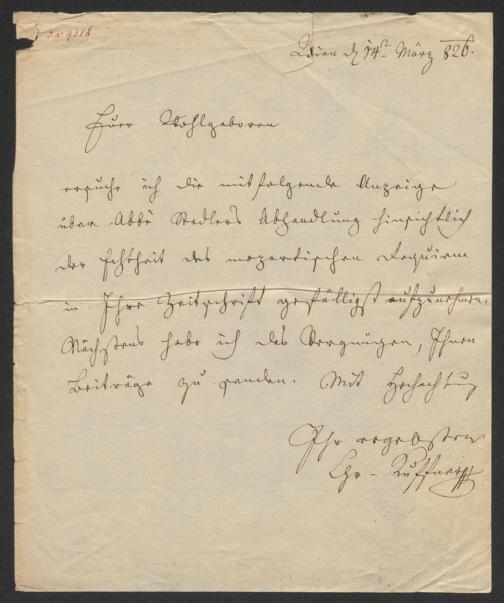 Wien d. 14t März 826.
Euer Wohlgeboren
ersuche ich die mitfolgende Anzeige
über Abbé Stadlers Abhandlung hinsichtlich
der Echtheit des mozartischen Requiem
in Ihre Zeitschrift gefälligst aufzunehmen.
Nächstens habe ich das Vergnügen, Ihnen
Beiträge zu senden. Mit Hochachtung
Ihr ergebenster
Chr. Kuffner